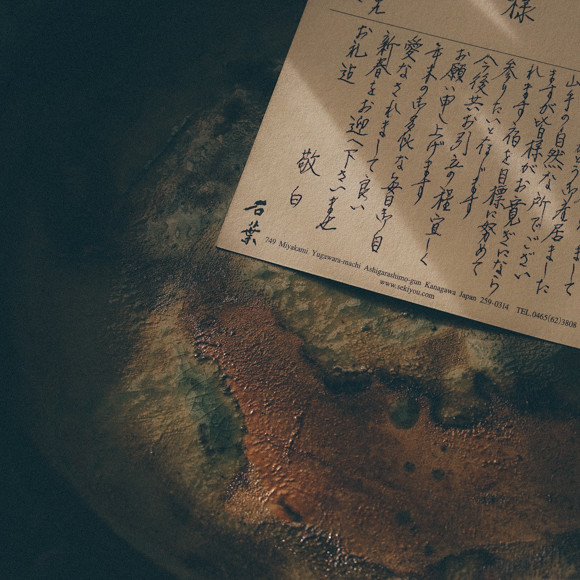 様
山手の自然な所でござい
ますが皆様がお寛ぎになら
れます宿を目標に努めて
参りたいと存じます
今後共お引立の程宜しく
お願い申し上げます
年末の御多忙な毎日御自
愛なされまして良い
新春をお迎へ下さいませ
お礼迄
敬白
石葉
749 Miyakami Yugawara-machi Ashigarashimo-gun Kanagawa Japan 259-0314 TEL.0465(62)3808
www.sekiyou.com